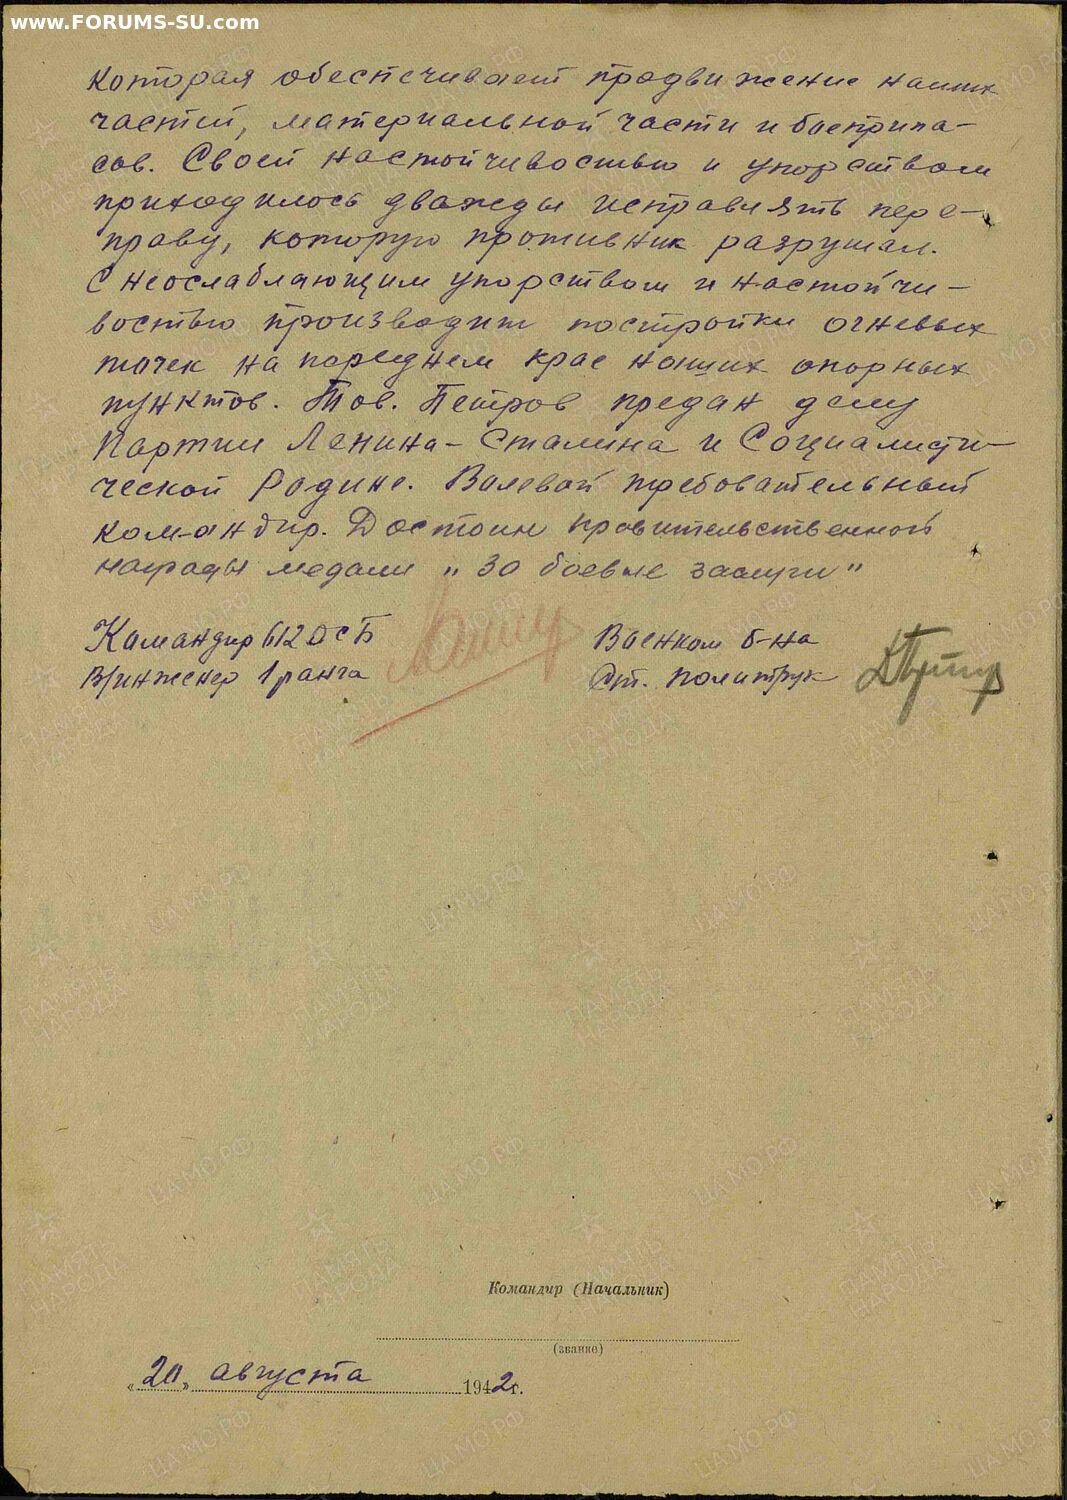 www.FORUMS-SU.com
которая обеспечивает продвижение наших
частей, материальной части и боеприпа-
сов. Своей настойчивостью и упорством
приходилось дважды исправлять пере-
праву, которую противник разрушал.
С неослабляющим упорством и настойчи-
востью производит постройки огневых
точек на переднем крае наших опорных
пунктов. Тов. Петров предан делу
Партии Ленина-Сталина и Социалисти-
ческой Родине. Волевой требовательный
командир. Достоин правительственной
награды медали „За боевые заслуги"
Командир 612 ОСБ
В/инженер 1 ранга
Военком б-на
Ст. политрук
Командир (Начальник)
(звание)
«20» августа 1942г.
ЦАМО.РФ
ПАМЯТЬ
НАРОДА